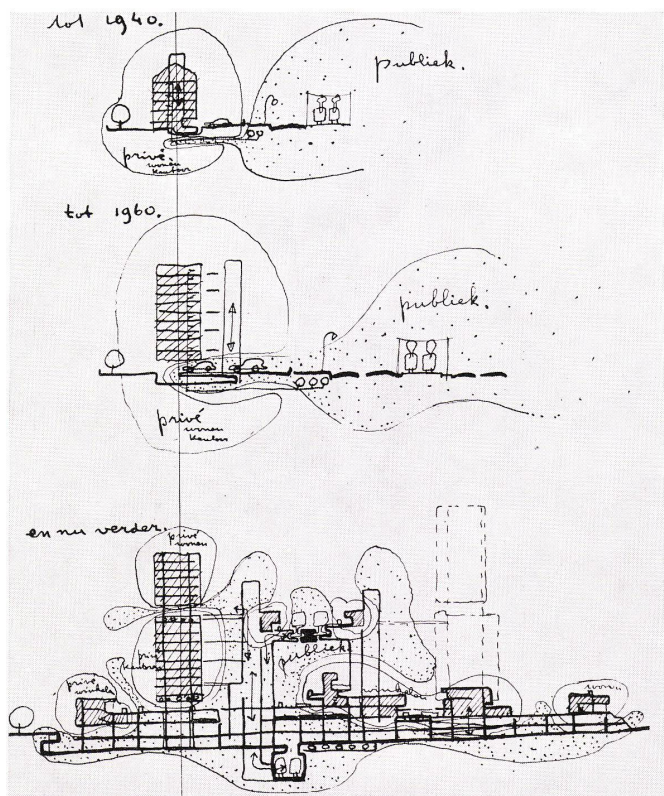 tot 1940.
publiek.
privé
wonen
kantoor
tot 1960.
publiek.
privé
wonen
kantoor
en nu verder.
privé
wonen
privé
kantoren
publiek
privé
winkels
wonen